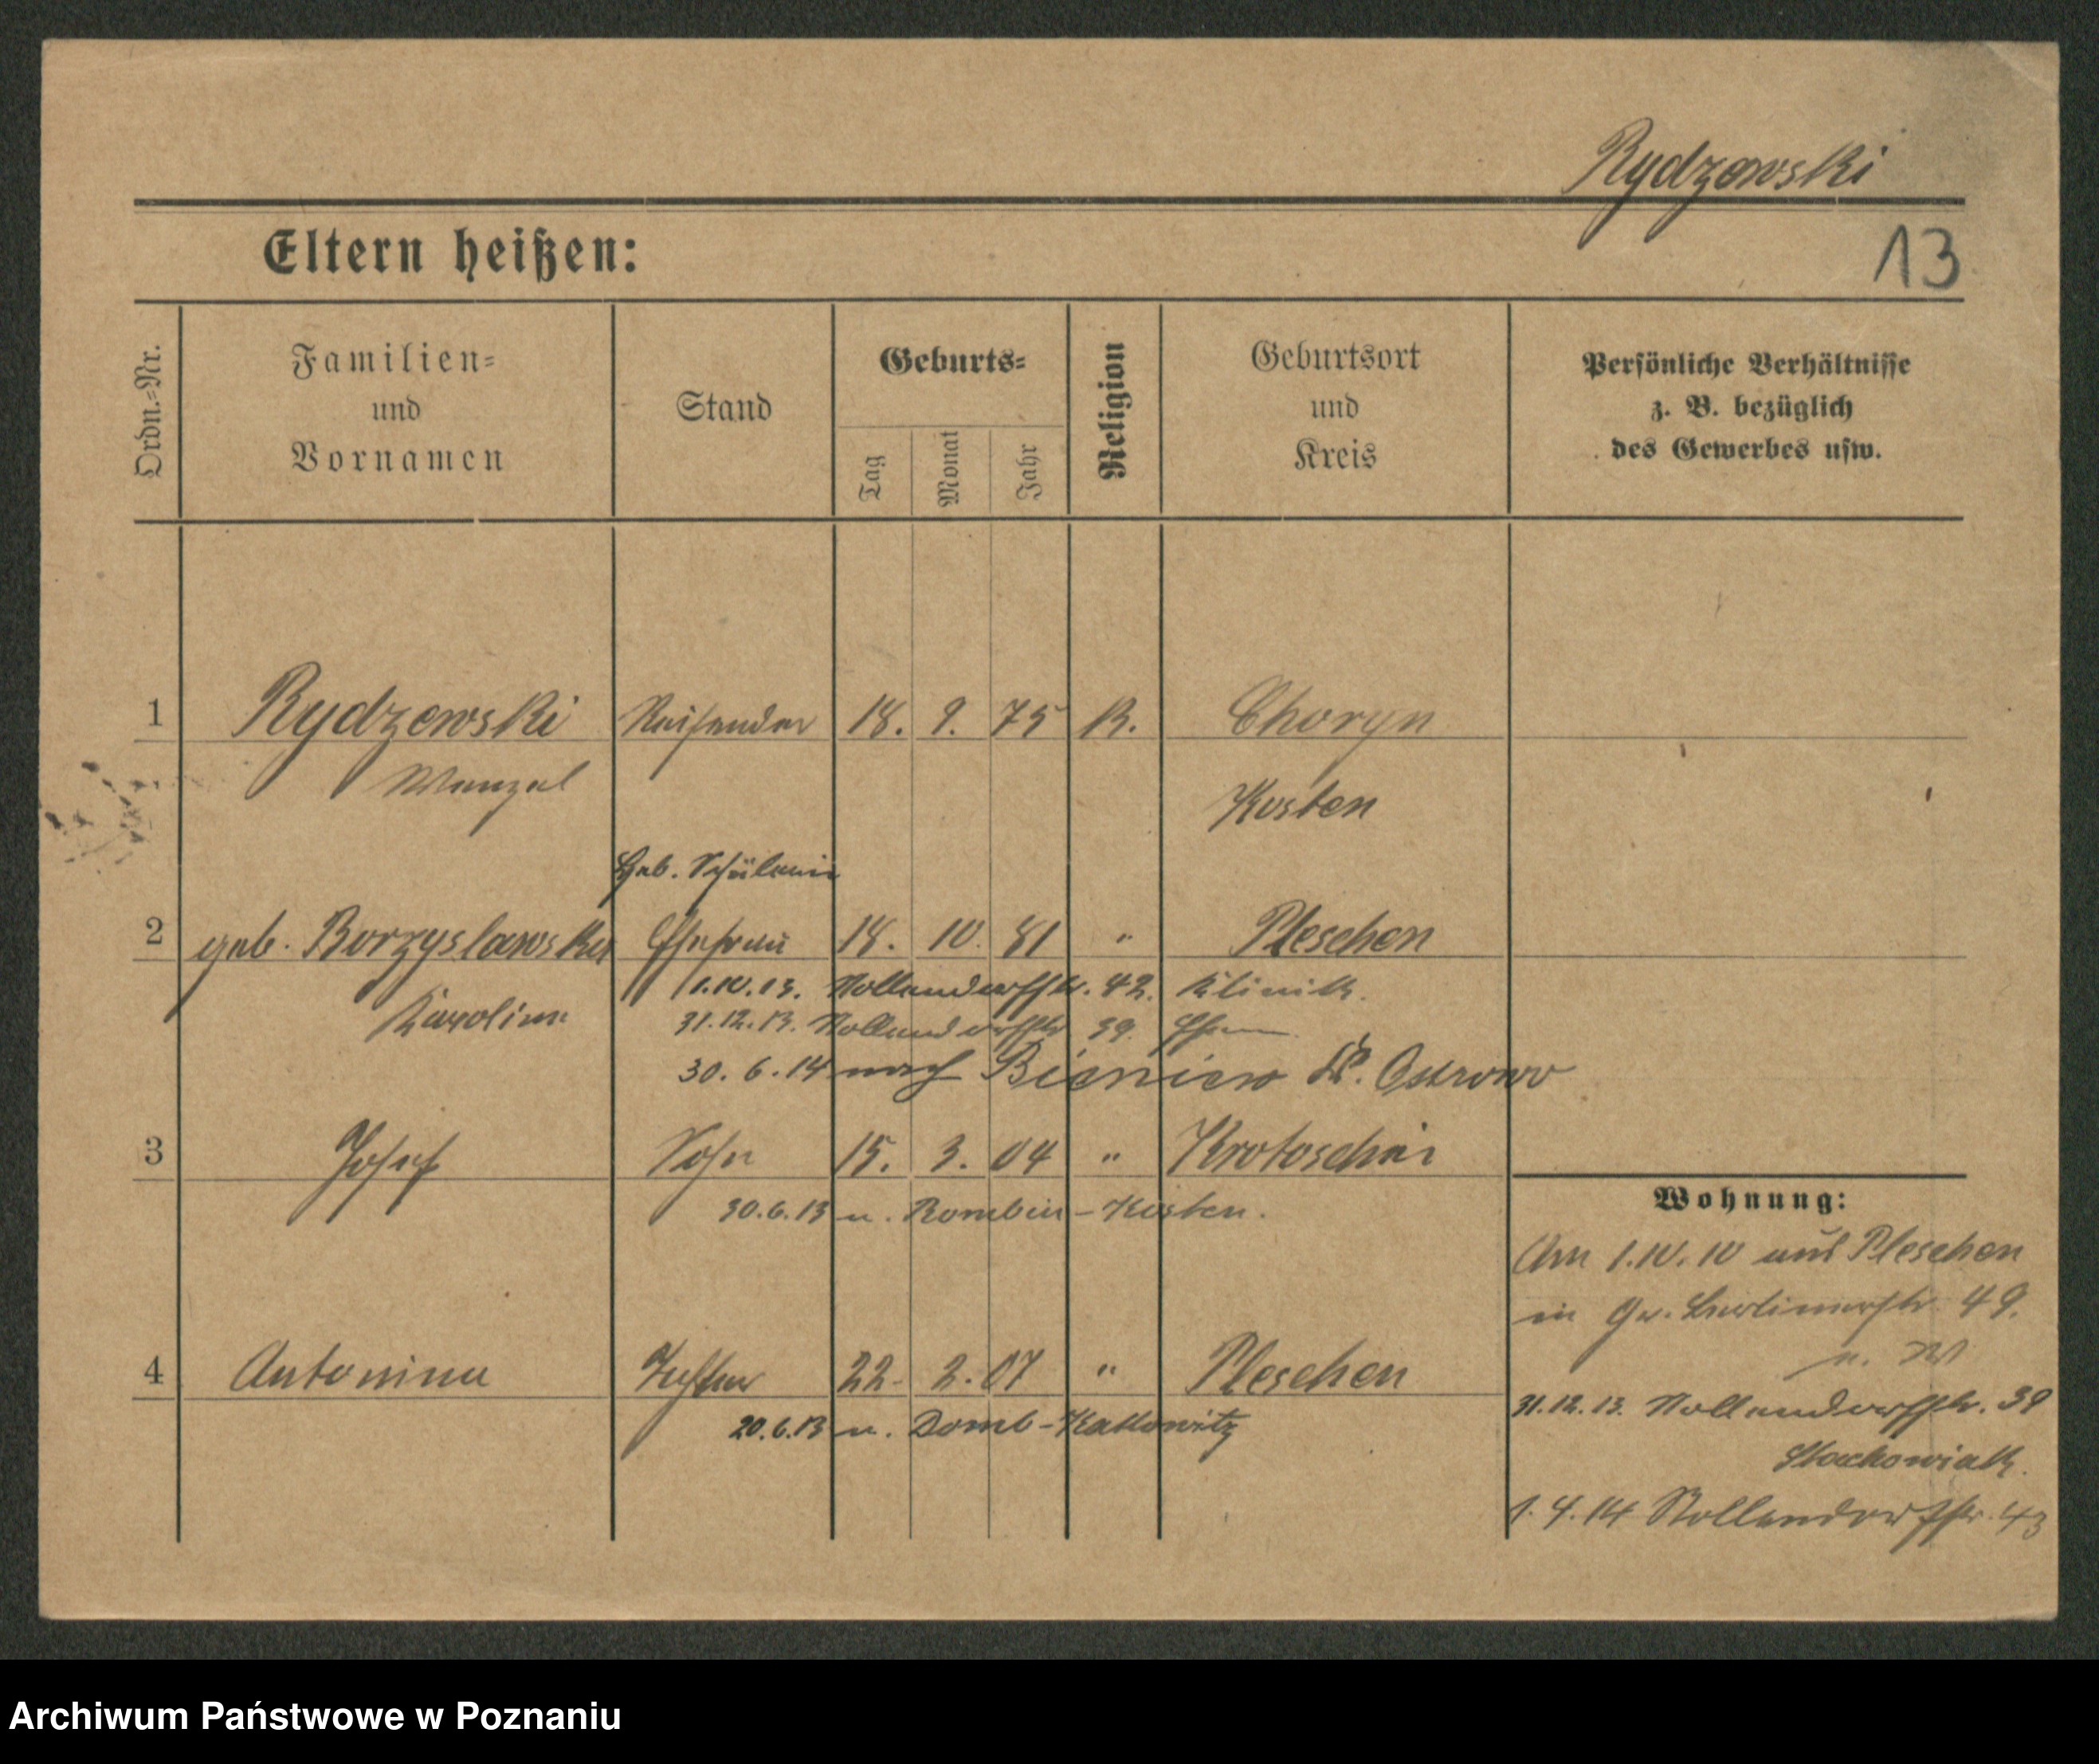 Rydzewski
13
Eltern heißen:
Ordn.=Nr.
Familien=
und
Vornamen
Stand
Geburts=
Tag
Monat
Jahr
Religion
Geburtsort
und
Kreis
Persönliche Verhältnisse
z. B. bezüglich
des Gewerbes usw.
1 Rydzewski Reisender 18. 9. 75 K. Choryn
Wenzel Kosten
Geb. Schülerin
2 geb. Borzyslawska Ehefrau 18. 10. 81 " Pleschen
1.10.13. Nollendorfstr. 42. Klinik.
Karoline 31.12.13. Nollendorfstr 39.
30. 6. 14 nach Bieniew Kr. Ostrowo
3 Josef Sohn 15. 3. 04 " Krotoschin
30.6.13 n. Rombin - Kosten.
4 Antonina Tochter 22. 2. 07 " Pleschen
20.6.13 n. Domb - Kattowitz
Wohnung:
Am 1.10.10 aus Pleschen
in Gr. Berlinerstr. 49.
31.12.13. Nollendorfstr. 39
Stachowiak.
1. 4. 14 Nollendorfstr. 43
Archiwum Państwowe w Poznaniu